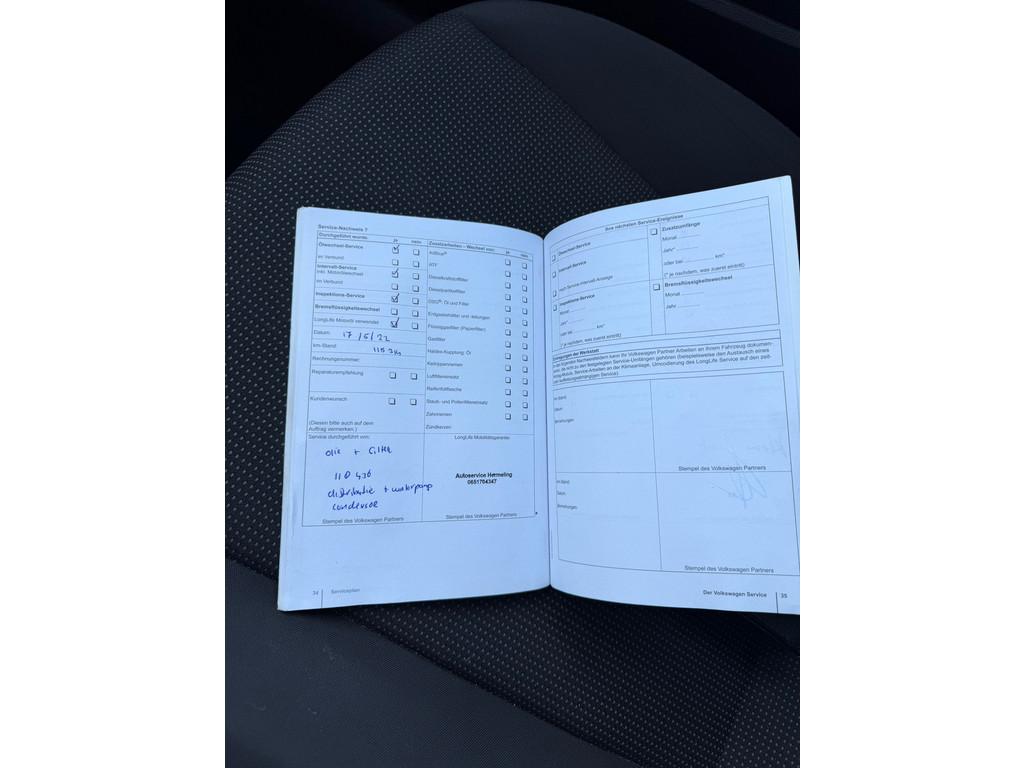 Service-Nachweis 7
Durchgeführt wurde: ja nein
Ölwechsel-Service
im Verbund
Intervall-Service
inkl. Motorölwechsel
im Verbund
Inspektions-Service
Bremsflüssigkeitswechsel
LongLife Motoröl verwendet
Datum: 17/5/22
km-Stand:
Rechnungsnummer:
Reparaturempfehlung
Kundenwunsch
(Diesen bitte auch auf dem
Auftrag vermerken.)
Service durchgeführt von:
olie + Filter
distributie + waterpomp
condensor
Stempel des Volkswagen Partners
Zusatzarbeiten – Wechsel von: ja nein
AdBlue®
ATF
Dieselkraftstofffilter
Dieselpartikelfilter
DSG®: Öl und Filter
Erdgasbehälter und -leitungen
Flüssiggasfilter (Papierfilter)
Gasfilter
Haldex-Kupplung: Öl
Keilrippenriemen
Luftfiltereinsatz
Reifenfüllflasche
Staub- und Pollenfiltereinsatz
Zahnriemen
Zündkerzen
LongLife Mobilitätsgarantie:
Autoservice Hermeling
0651704347
Stempel des Volkswagen Partners
34 Serviceplan
Ihre nächsten Service-Ereignisse
Ölwechsel-Service
Intervall-Service
nach Service-Intervall-Anzeige
Inspektions-Service
Monat
Jahr*
oder bei km*
(* je nachdem, was zuerst eintritt)
Zusatzumfänge
Monat
Jahr*
oder bei km*
(* je nachdem, was zuerst eintritt)
Bremsflüssigkeitswechsel
Monat
Jahr
Eintragungen der Werkstatt
In den folgenden Nachweisfeldern kann Ihr Volkswagen Partner Arbeiten an Ihrem Fahrzeug dokumen-
tieren, die nicht zu den freigängigen Service-Umfängen gehören (beispielsweise den Austausch eines
km-Stand:
Datum:
Bemerkungen:
Stempel des Volkswagen Partners
km-Stand:
Datum:
Bemerkungen:
Stempel des Volkswagen Partners
Der Volkswagen Service 35